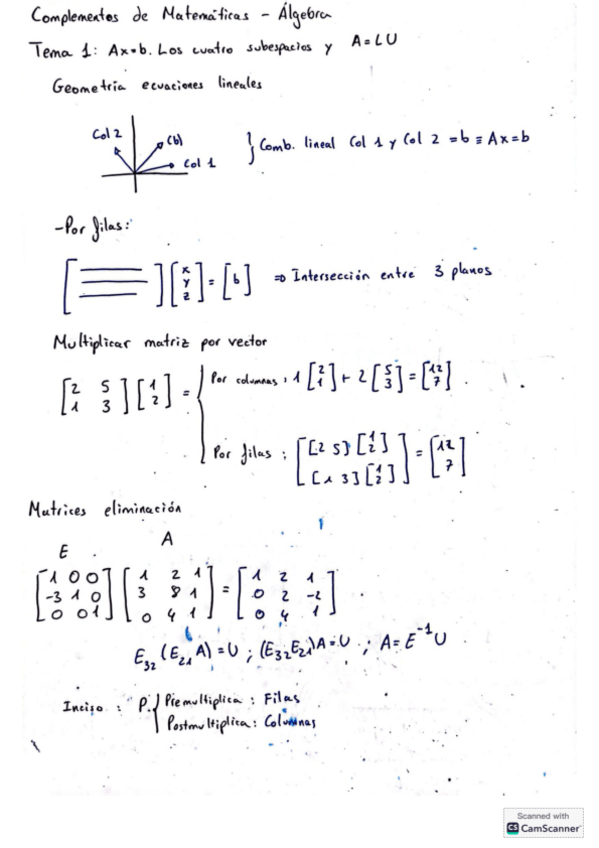 Complementos de Matemáticas - Álgebra
Tema 1: Ax=b. Los cuatro subespacios y A=LU
Geometría ecuaciones lineales
Col 2 (b) Col 1 } Comb. lineal Col 1 y Col 2 = b ≡ Ax=b
-Por filas:
[ ] [x y z] = [b] ⇒ Intersección entre 3 planos
Multiplicar matriz por vector
[2 5; 1 3] [1; 2] = { Por columnas: 1 [2; 1] + 2 [5; 3] = [12; 7]
Por filas: [[2 5] [1; 2]; [1 3] [1; 2]] = [12; 7]
Matrices eliminación
E A
[1 0 0; -3 1 0; 0 0 1] [1 2 1; 3 8 1; 0 4 1] = [1 2 1; 0 2 -2; 0 4 1]
E32 (E21 A) = U ; (E32 E21) A = U ; A = E⁻¹U
Inciso: P. { Premultiplica: Filas
Postmultiplica: Columnas
Scanned with
CS CamScanner